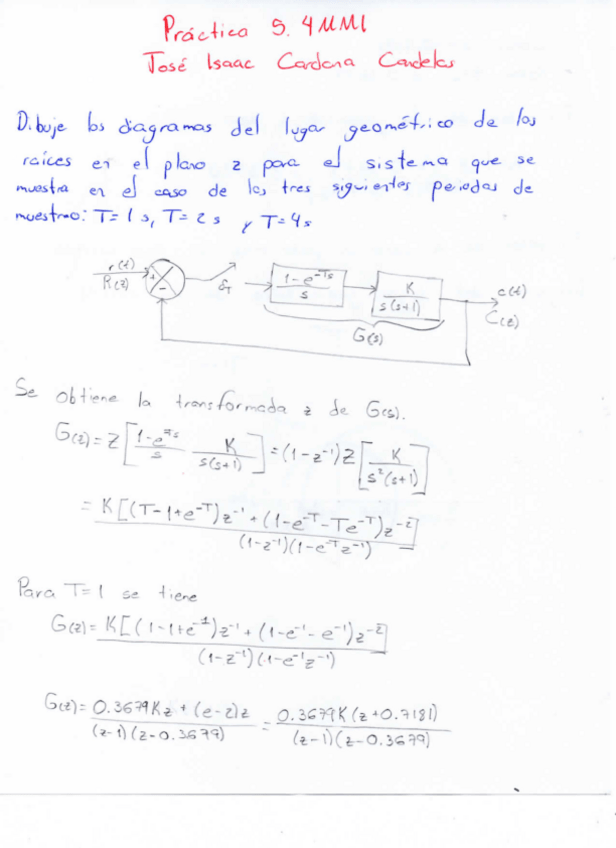 Práctica 5.4 MM1
José Isaac Cardona Candelas
Dibuje los diagramas del lugar geométrico de las
raíces en el plano z para el sistema que se
muestra en el caso de los tres siguientes periodos de
muestreo: T= 1 s, T= 2 s y T= 4 s
r(t)
R(z)
+
-
δT
1-e^-Ts / s
K / s(s+1)
c(t)
C(z)
G(s)
Se obtiene la transformada z de G(s).
G(z) = Z[1-e^-Ts / s K / s(s+1)] = (1-z^-1) Z[K / s²(s+1)]
= K[(T-1+e^-T)z^-1 + (1-e^-T-Te^-T)z^-2] / (1-z^-1)(1-e^-T z^-1)
Para T=1 se tiene
G(z) = K[(1-1+e^-1)z^-1 + (1-e^-1-e^-1)z^-2] / (1-z^-1)(1-e^-1z^-1)
G(z) = 0.3679Kz + (e-2)z / (z-1)(z-0.3679) = 0.3679K(z+0.7181) / (z-1)(z-0.3679)